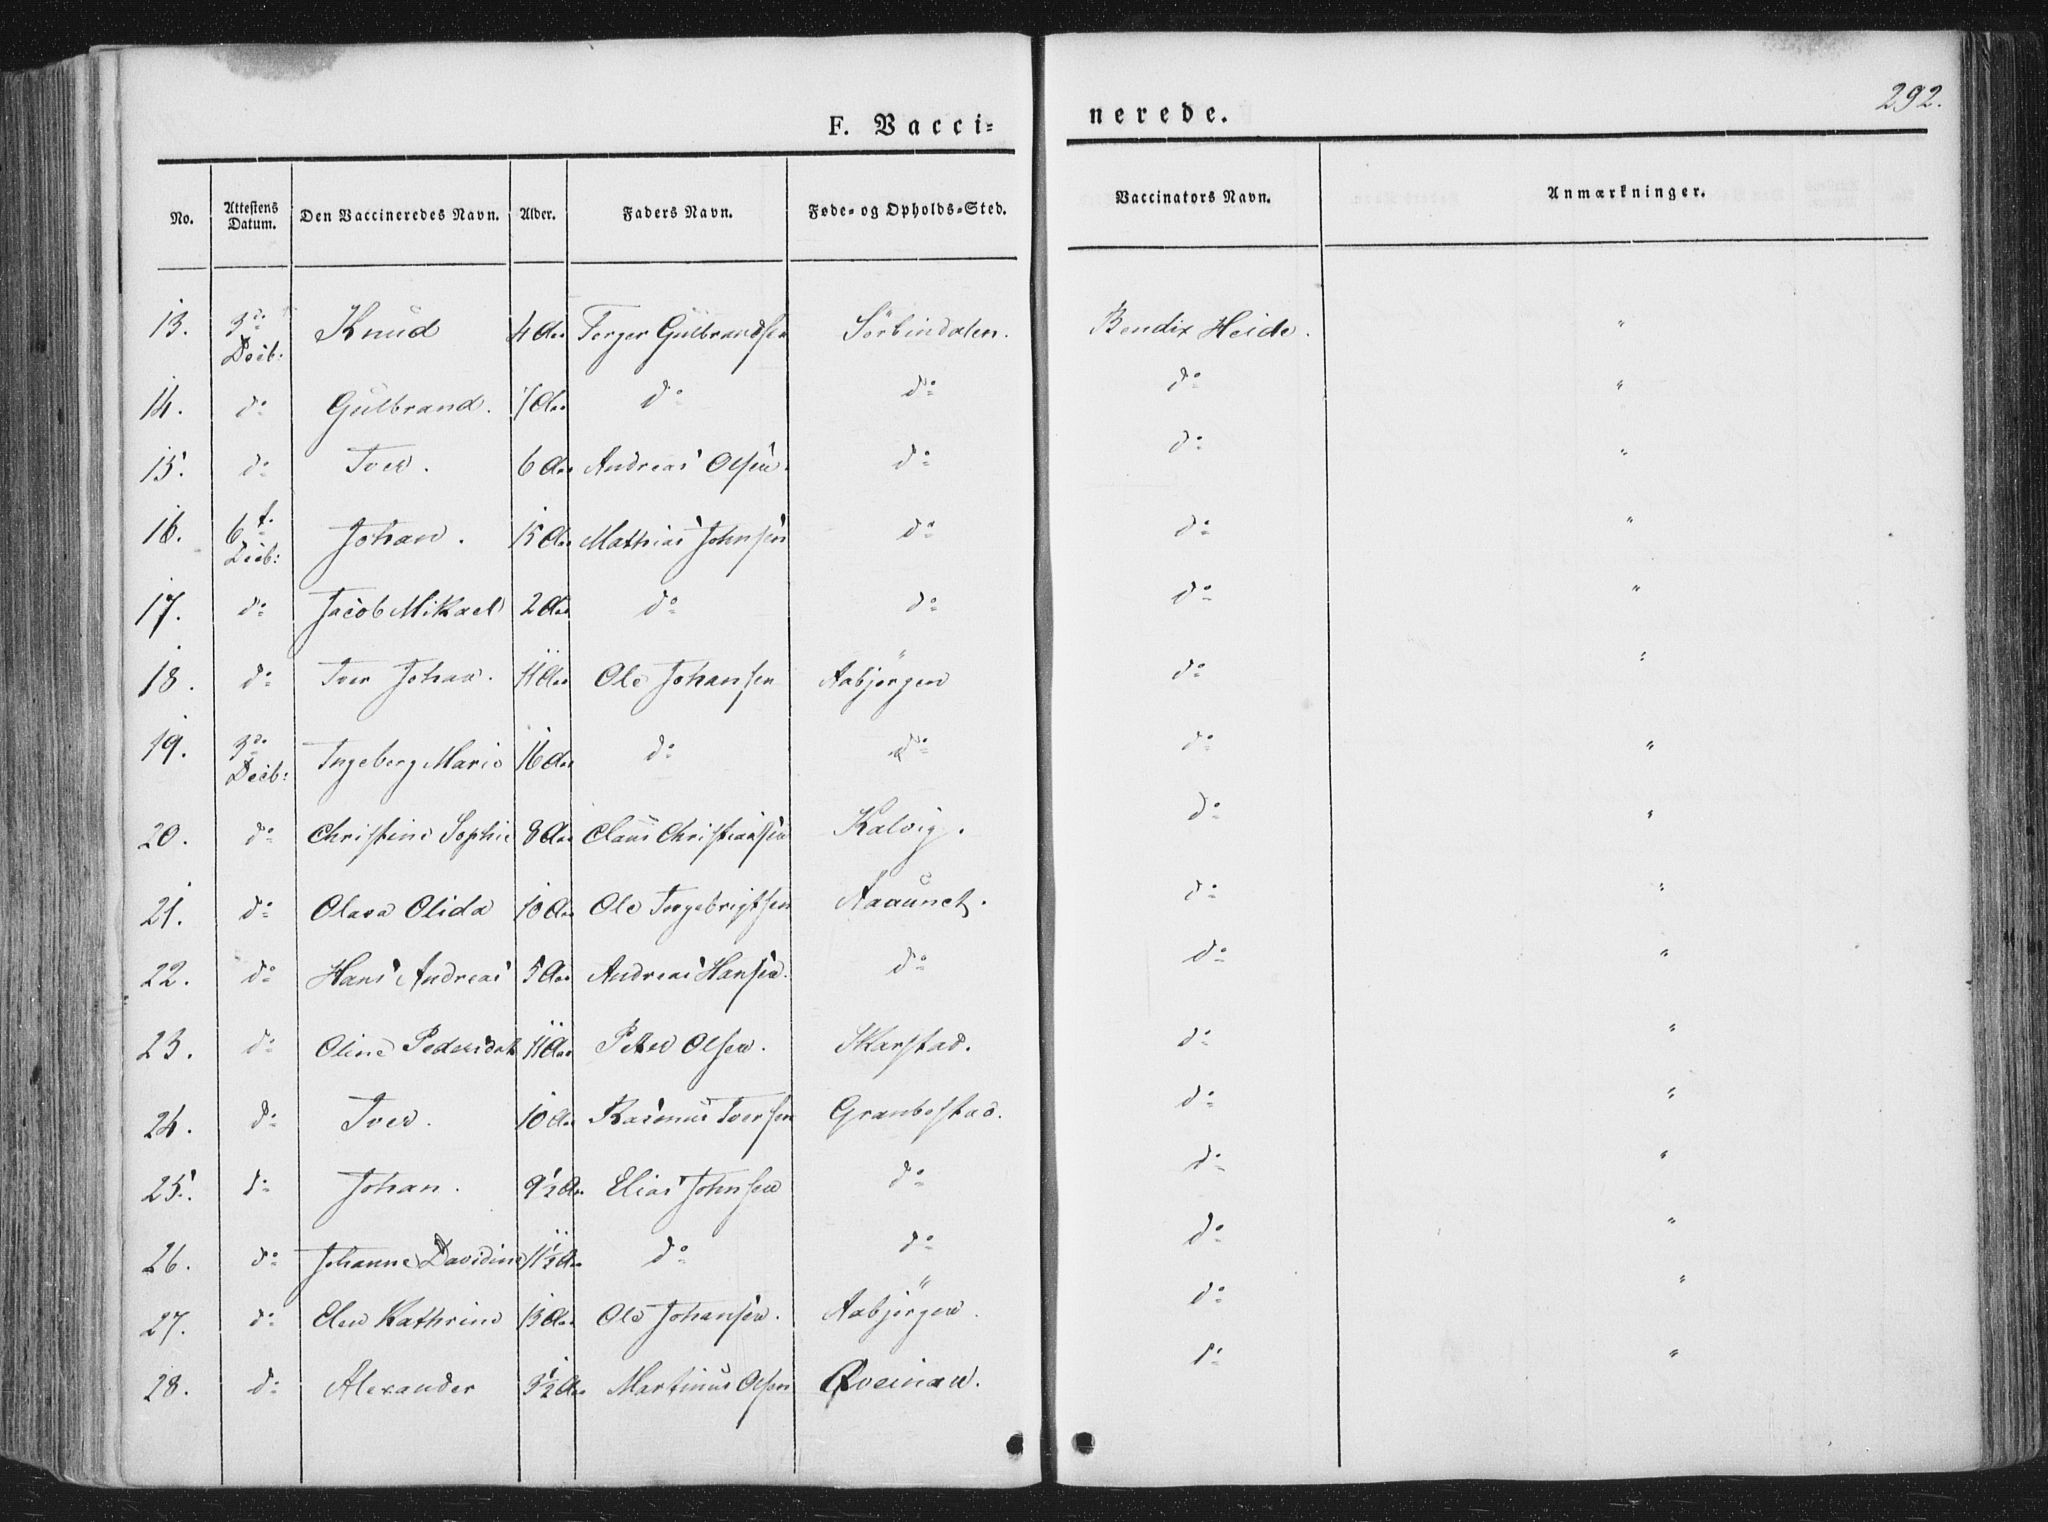 292.
F. Vacci=nerede.
No. | Attestens Datum. | Den Vaccineredes Navn. | Alder. | Faders Navn. | Føde- og Opholds-Sted. | Vaccinators Navn. | Anmærkninger.
13. | 3de Decb: | Knud | 4 Aar | Torger Gulbrandsen | Sörbindalen. | Bendix Heide. | "
14. | do | Gulbrand. | 7 Aar | do | do | do | "
15. | do | Iver. | 6 Aar | Andreas Olsen. | do | do | "
16. | 6te Decb: | Johan. | 15 Aar | Mathias Johnsen | do | do | "
17. | do | Jacob Mikael | 2 Aar | do | do | do | "
18. | do | Iver Johan. | 11 Aar | Ole Johansen | Aabjörgen | do | "
19. | 3de Decb: | Ingeborg Marie | 16 Aar | do | do | do | "
20. | do | Christine Sophie | 8 Aar | Claus Christiansen | Kalvig. | do | "
21. | do | Olava Olida | 10 Aar | Ole Ingebrigtsen | Aaaunet. | do | "
22. | do | Hans Andreas | 5 Aar | Andreas Hansen. | do | do | "
23. | do | Oline Pedersdat | 11 Aar | Peter Olsen. | Skarstad. | do | "
24. | do | Iver. | 10 Aar | Rasmus Iversen | Granbostad. | do | "
25. | do | Johan. | 9½ Aar | Elias Johnsen | do | do | "
26. | do | Johanne Davidine | 11½ Aar | do | do | do | "
27. | do | Elen Kathrine | 13 Aar | Ole Johansen. | Aabjörgen. | do | "
28. | do | Alexander | 3½ Aar | Martinus Olsen | Qveinan. | do | "